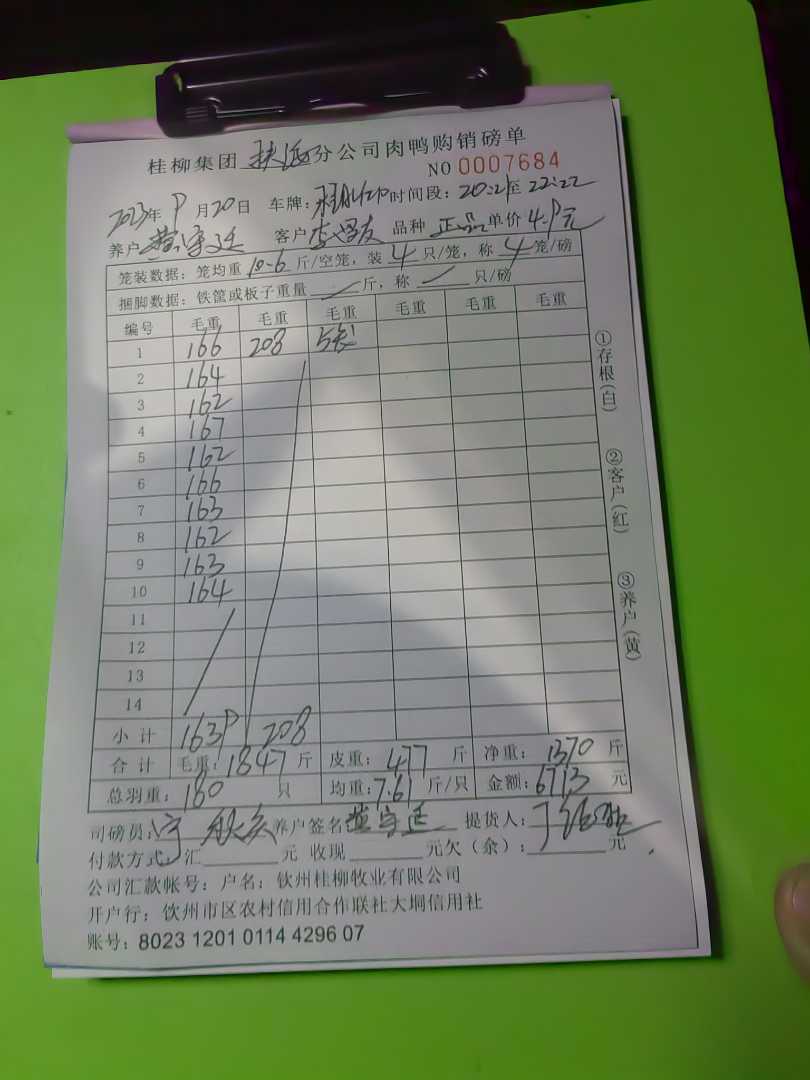 桂柳集团 分公司肉鸭购销磅单
NO 0007684
2023年 9月20日 车牌: 时间段:20:21至22:22
养户 黄守廷 客户 李昌友 品种 正品 单价 4.9元
笼装数据:笼均重 10.6 斤/空笼,装 4 只/笼,称 4 笼/磅
捆脚数据:铁筐或板子重量 / 斤,称 / 只/磅
编号 毛重 毛重 毛重 毛重 毛重 毛重
1 166 208 5
2 164
3 162
4 167
5 162
6 166
7 163
8 162
9 163
10 164
11
12
13
14
小计 1639 208
合计 毛重:1847 斤 皮重:477 斤 净重:1370 斤
总羽重:180 只 均重:7.61 斤/只 金额:6713 元
司磅员: 养户签名 黄守廷 提货人:
付款方式:汇 元 收现 元欠(余): 元
公司汇款帐号:户名:钦州桂柳牧业有限公司
开户行:钦州市区农村信用合作联社大垌信用社
账号:8023 1201 0114 4296 07
①存根(白)
②客户(红)
③养户(黄)